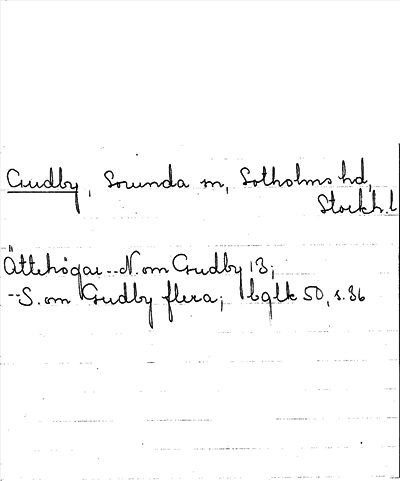 Grudby, Sorunda sn, Sotholms hd,
Stockh. l
Ättehögar -- N. om Grudby 13;
-- S. om Grudby flera; bglk 50, s. 36